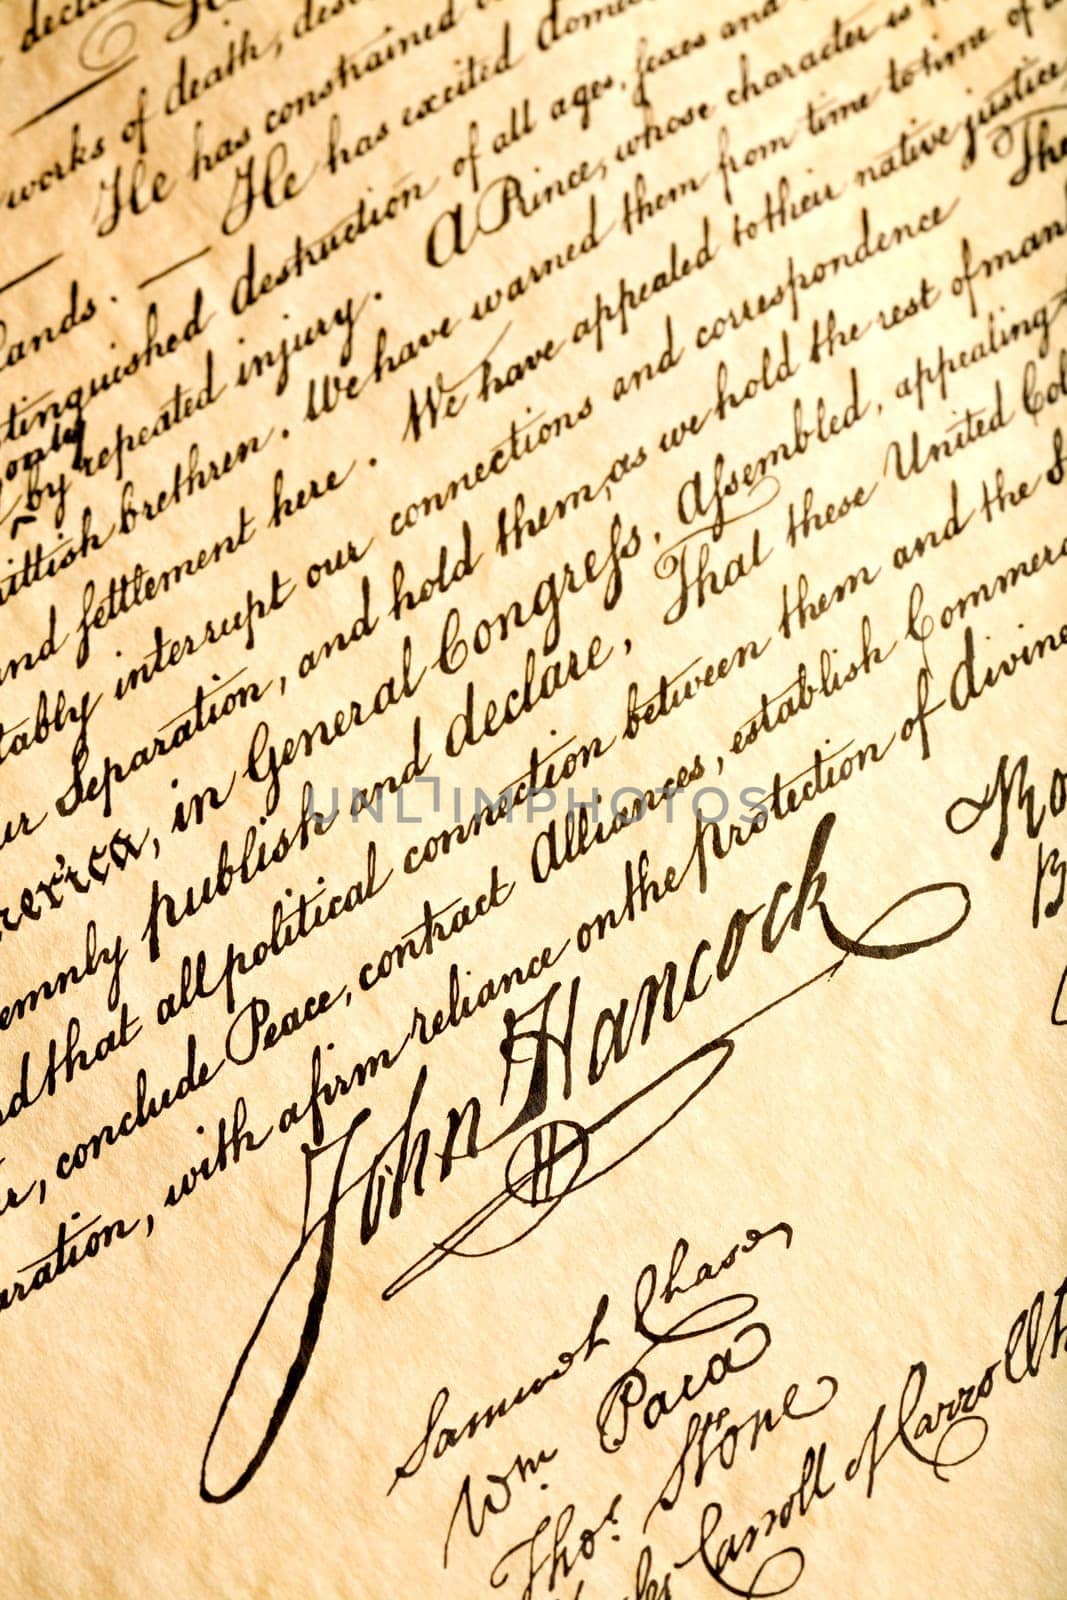 decla
works of death, des
He has constrained
He has excited domes
lands.
stinguished destruction of all ages, sexes and
only
by repeated injury. A Prince, whose character is
rittish brethren. We have warned them from time to time of
and settlement here. We have appealed to their native justice
tably interrupt our connections and correspondence The
ur Separation, and hold them, as we hold the rest of man
rerica, in General Congress, Assembled, appealing
emnly publish and declare, That these United Col
nd that all political connection between them and the S
r, conclude Peace, contract Alliances, establish Commerc
aration, with a firm reliance on the protection of divine
John Hancock
Ro
B
Samuel Chase
Wm. Paca
Thos. Stone
les Carroll of Carrollt
UNLIMPHOTOS